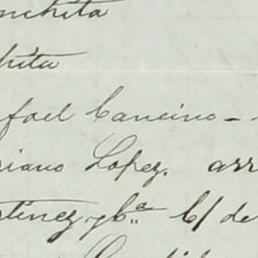 nchita
hita
fael Cancino -
riano Lopez. arr
rtinez y Ca C/ de